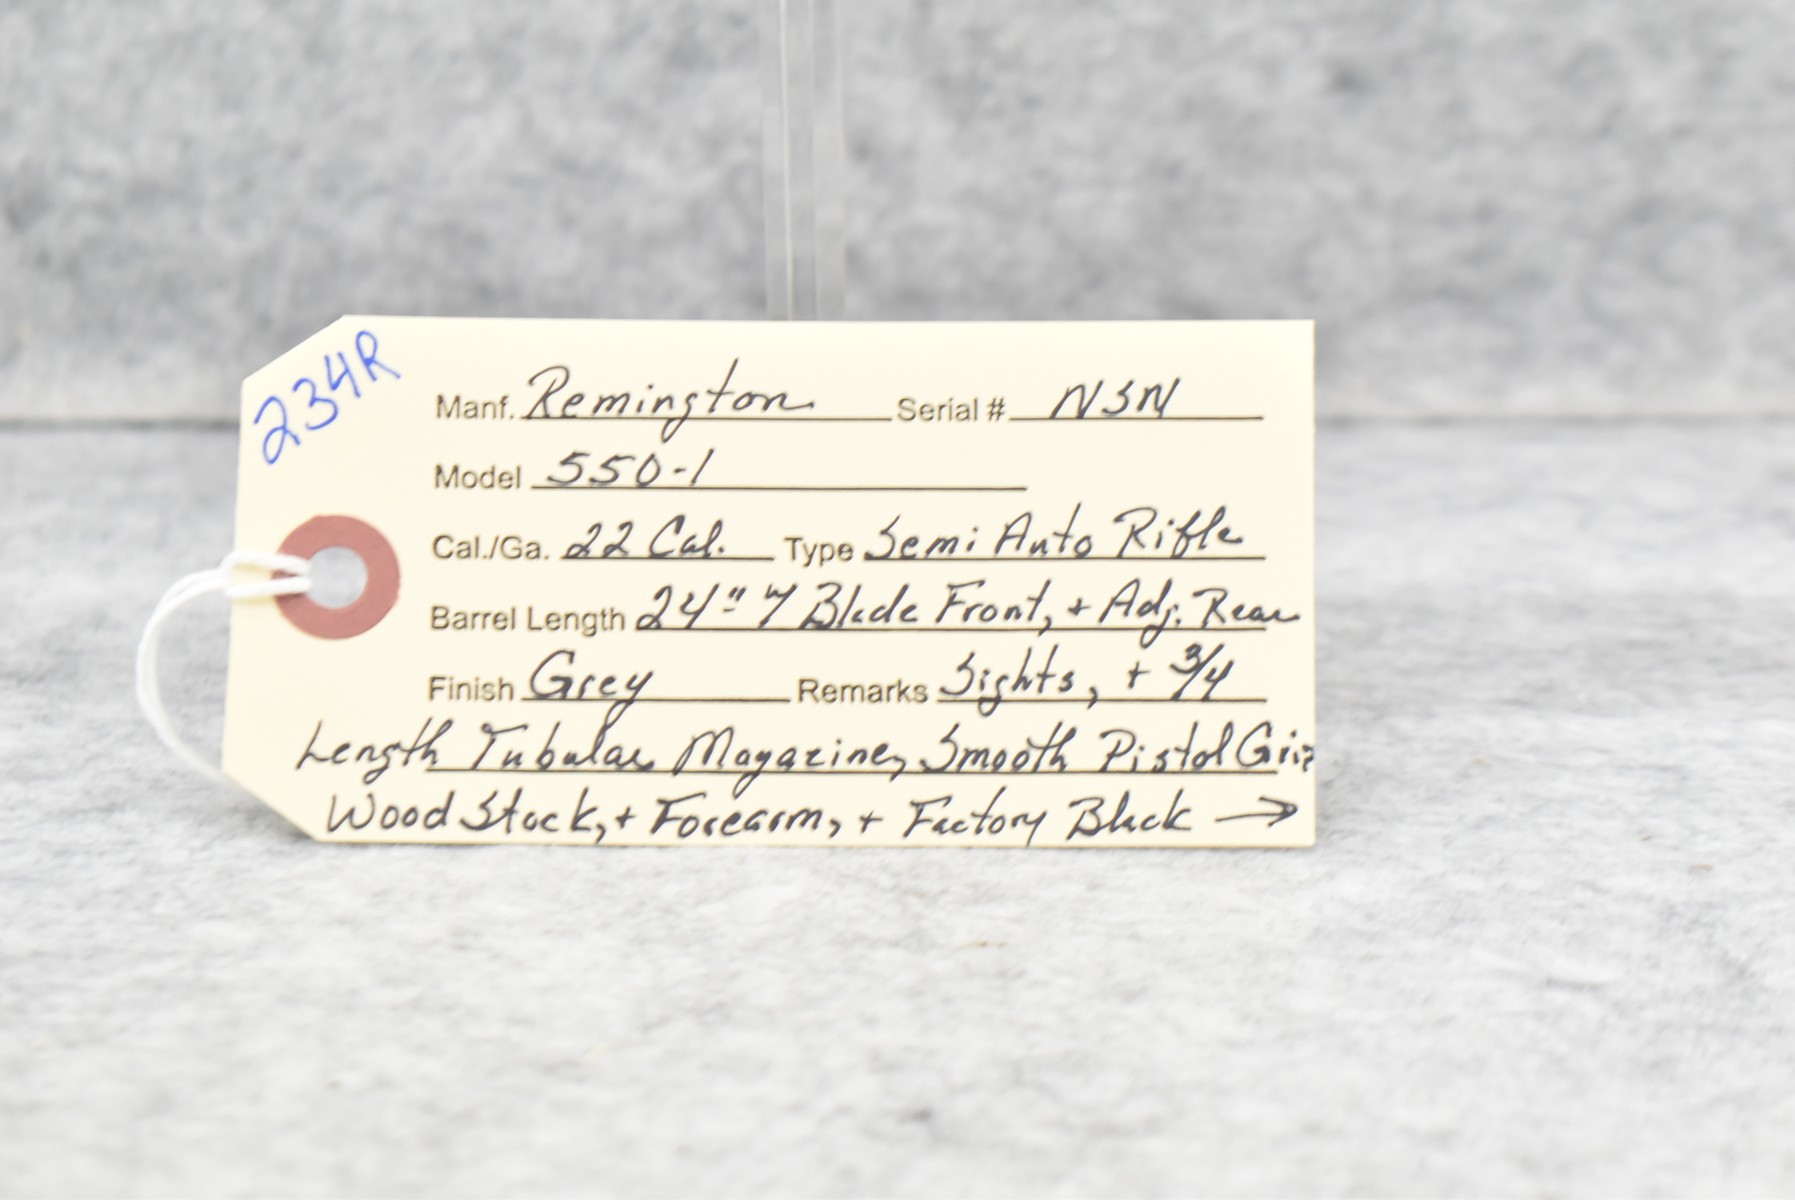 234R
Manf. Remington Serial # NSN
Model 550-1
Cal./Ga. 22 Cal. Type Semi Auto Rifle
Barrel Length 24" w/ Blade Front, + Adj. Rear
Finish Grey Remarks Sights, + 3/4
Length Tubular Magazine, Smooth Pistol Grip
Wood Stock, + Forearm, + Factory Black →